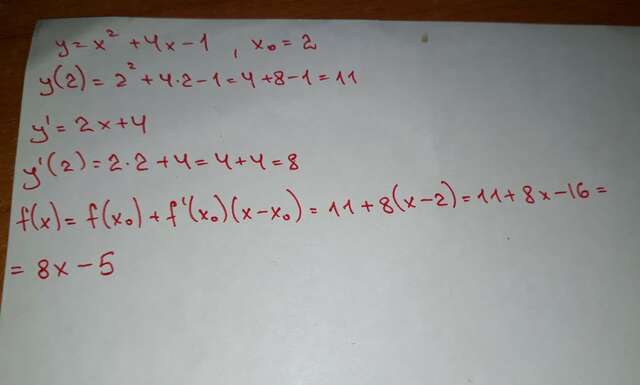 y = x² + 4x - 1 , x₀ = 2
y(2) = 2² + 4·2 - 1 = 4 + 8 - 1 = 11
y' = 2x + 4
y'(2) = 2·2 + 4 = 4 + 4 = 8
f(x) = f(x₀) + f'(x₀)(x - x₀) = 11 + 8(x - 2) = 11 + 8x - 16 =
= 8x - 5